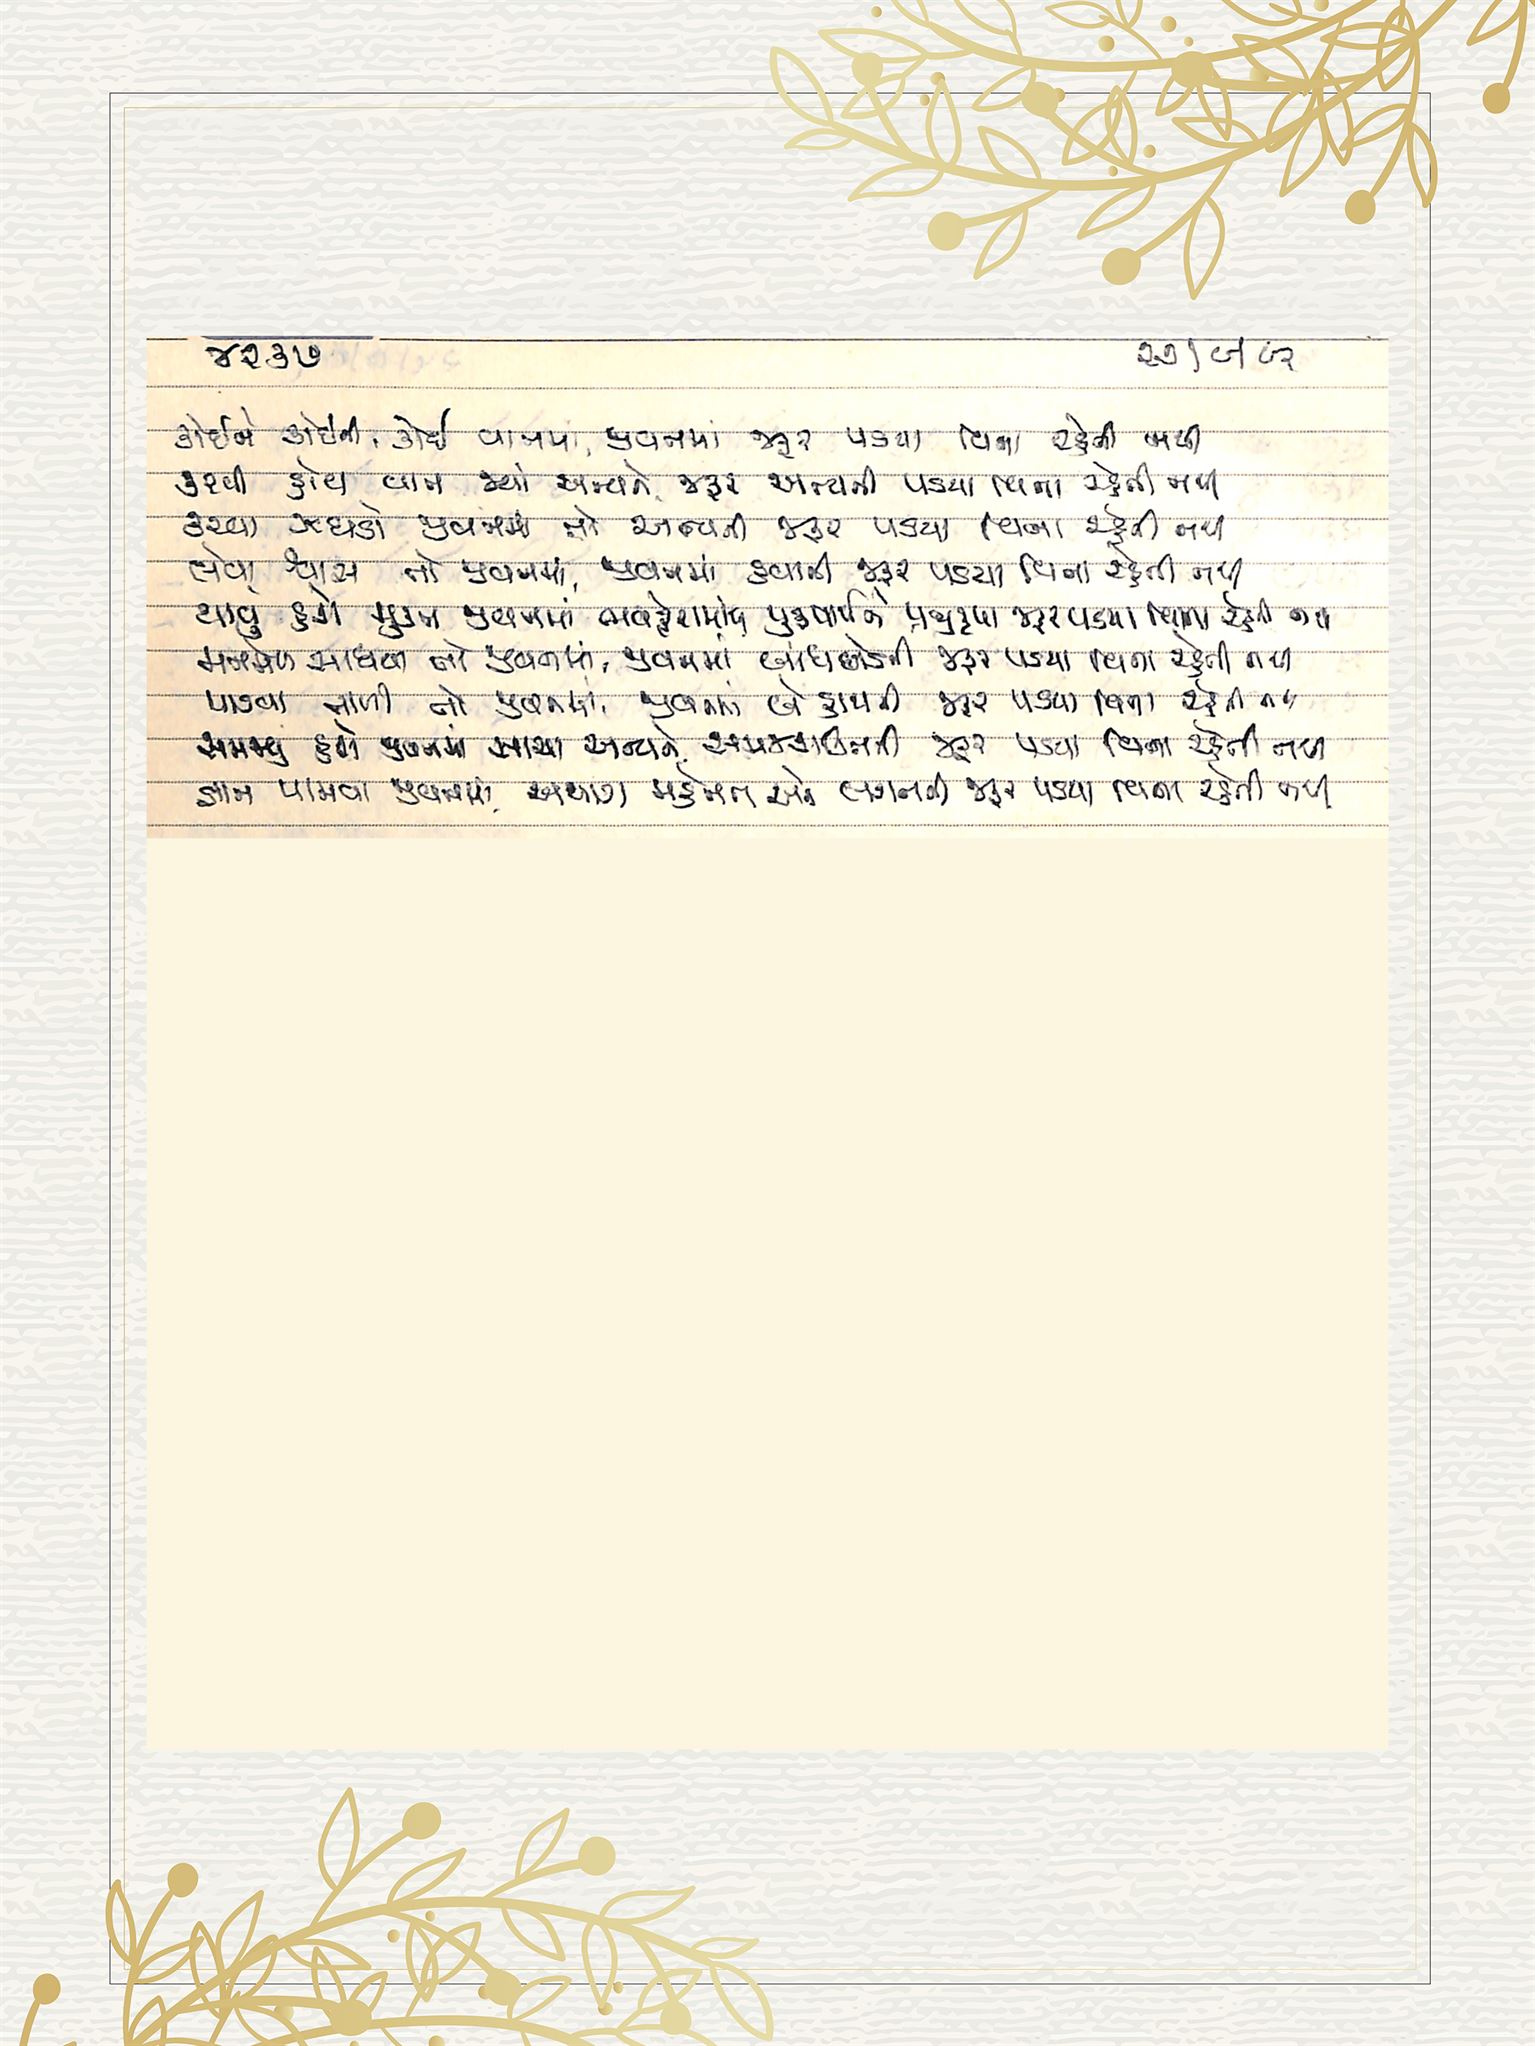 ૪૨૩૭ ૨૭/૯/૯૨
કોઈને કોઈની, કોઈ વાતમાં, જીવનમાં જરૂર પડયા વિના રહેતી નથી
કરવી હોય વાત જ્યાં અન્યને, જરૂર અન્યની પડયા વિના રહેતી નથી
કરવા ઝઘડો જીવનમાં તો અન્યની જરૂર પડયા વિના રહેતી નથી
લેવા શ્વાસ તો જીવનમાં, જીવનમાં હવાની જરૂર પડયા વિના રહેતી નથી
થાવું હશે મુક્ત જીવનમાં પુરુષાર્થને પ્રભુકૃપા જરૂર પડયા વિના રહેતી નથી
મનમેળ સાધવા તો જીવનમાં, જીવનમાં બાંધછોડની જરૂર પડયા વિના રહેતી નથી
પાડવા તાળી તો જીવનમાં, જીવનમાં બે હાથની જરૂર પડયા વિના રહેતી નથી
સમજવું હશે જીવનમાં સાચા અન્યને, સમજશક્તિની જરૂર પડયા વિના રહેતી નથી
જ્ઞાન પામવા જીવનમાં, અથાગ મહેનત અને લગનની જરૂર પડયા વિના રહેતી નથી